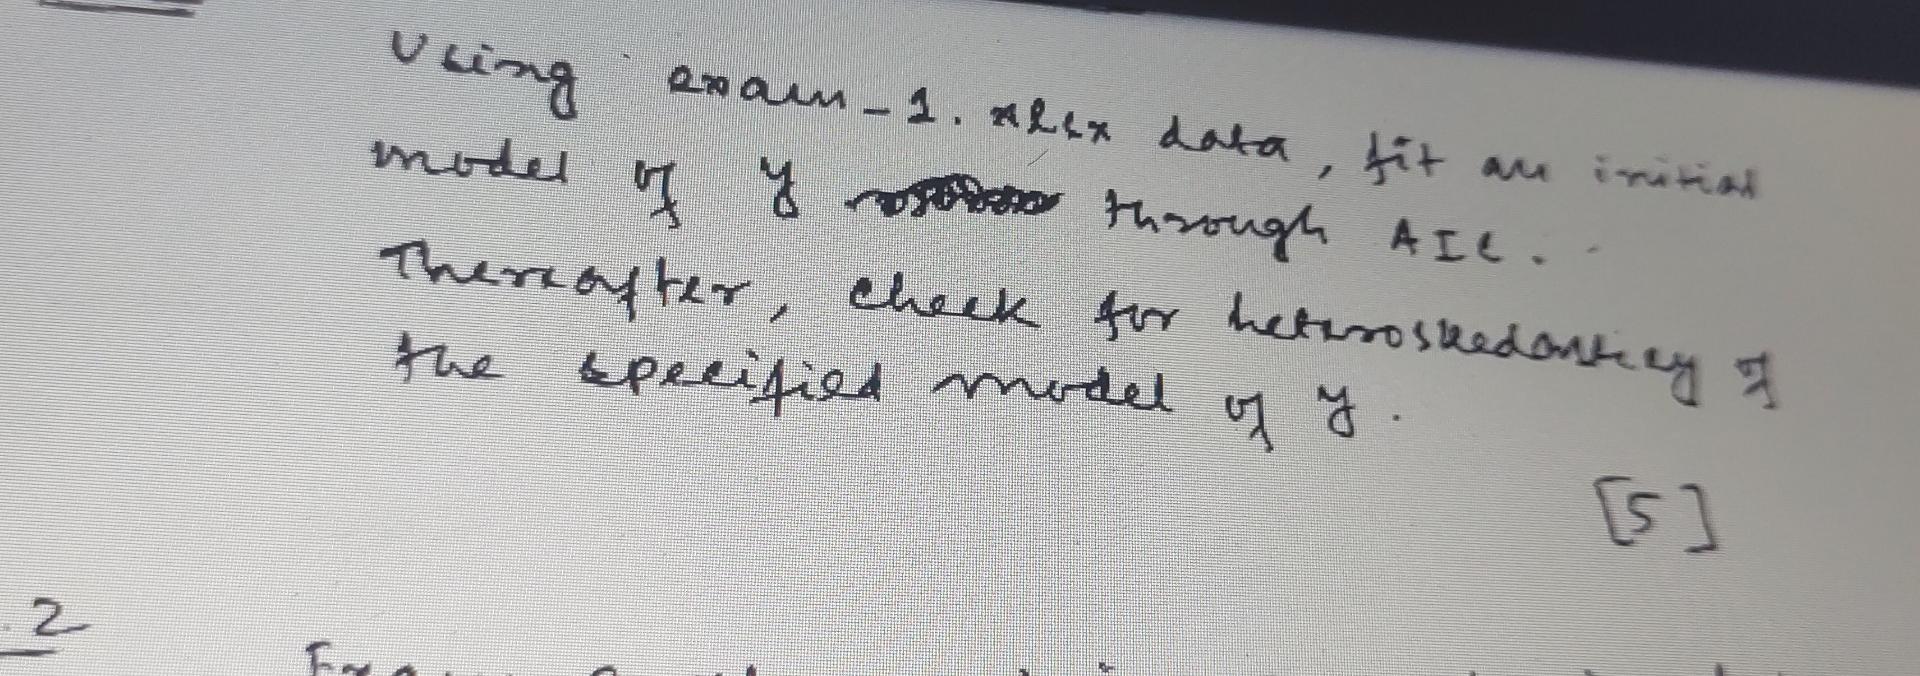 Using exam-1.xlsx data, fit an initial
model of y through AIC.
Thereafter, check for heteroskedasticity of
the specified model of y.
[5]
2